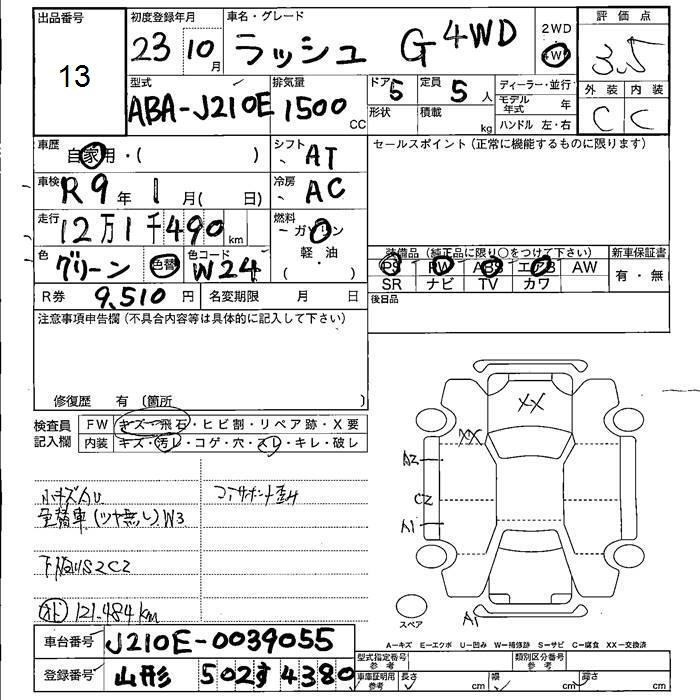 出品番号
13
初度登録年月
23 10 月
車名・グレード
ラッシュ G 4WD
2WD
4W
評価点
3.5
型式
ABA-J210E
排気量
1500 CC
ドア 5
形状
定員 5 人
積載 kg
ディーラー・並行
モデル年式 年
ハンドル 左・右
外装 内装
C C
車歴
自家用・( )
シフト
AT
セールスポイント(正常に機能するものに限ります)
車検
R9年 1月( 日)
冷房
AC
走行
12万1千490 km
燃料
ガソリン
軽・油
( )
色
グリーン
色替
色コード
W24
装備品(純正品に限り○をつけて下さい)
新車保証書
PS PW ABS エアB AW
SR ナビ TV カワ
有・無
R券 9,510 円
名変期限 月 日
後日品
注意事項申告欄(不具合内容等は具体的に記入して下さい)
修復歴 有 (箇所 )
検査員記入欄
FW キズ・飛石・ヒビ割・リペア跡・X要
内装 キズ・汚レ・コゲ・穴・スレ・キレ・破レ
XX
XX
A2
CZ
A1
A1
スペア
小キズAU
コアサポート歪み
色替車(ツヤ無し)W3
下廻りS2C2
121,484km
A-キズ E-エクボ U-凹み W-補修跡 S-サビ C-腐食 XX-交換済
車台番号 J210E-0039055
登録番号 山形 502す4380
型式指定番号 参考
類別区分番号 参考
車庫証明用 参考
長さ cm
幅 cm
高さ cm